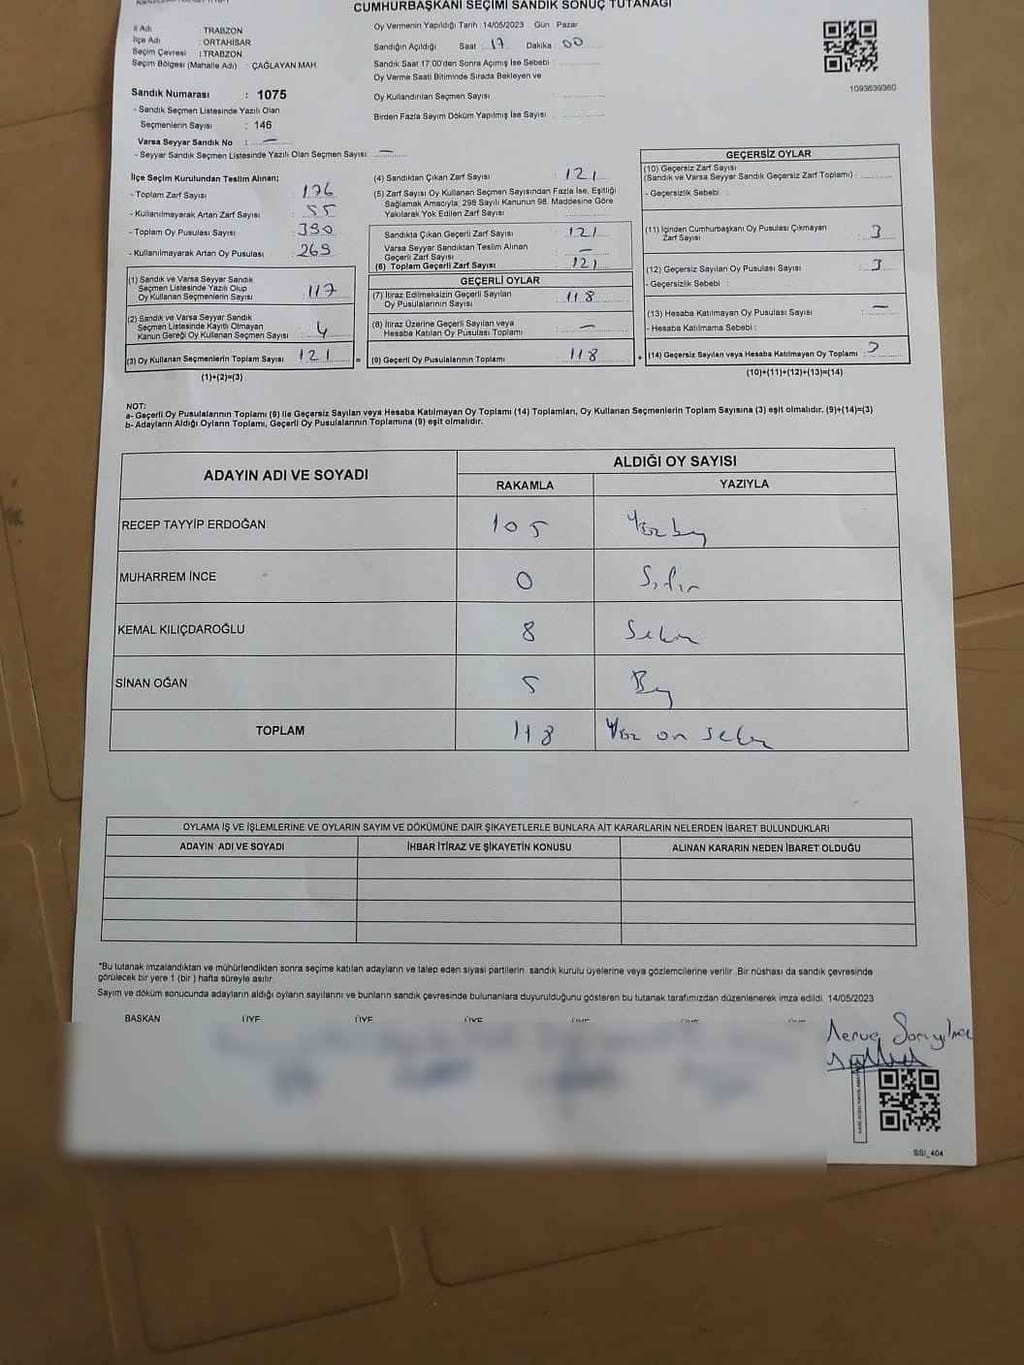 CUMHURBAŞKANI SEÇİMİ SANDIK SONUÇ TUTANAĞI
İl Adı : TRABZON
İlçe Adı : ORTAHİSAR
Seçim Çevresi : TRABZON
Seçim Bölgesi (Mahalle Adı) : ÇAĞLAYAN MAH.
Oy Vermenin Yapıldığı Tarih 14/05/2023 Gün Pazar
Sandığın Açıldığı Saat 17 Dakika 00
Sandık Saat 17:00'den Sonra Açılmış İse Sebebi
Oy Verme Saati Bitiminde Sırada Bekleyen ve
Oy Kullandırılan Seçmen Sayısı
Birden Fazla Sayım Döküm Yapılmış İse Sayısı
1093639360
Sandık Numarası : 1075
- Sandık Seçmen Listesinde Yazılı Olan
Seçmenlerin Sayısı : 146
Varsa Seyyar Sandık No : —
- Seyyar Sandık Seçmen Listesinde Yazılı Olan Seçmen Sayısı : —
İlçe Seçim Kurulundan Teslim Alınan;
- Toplam Zarf Sayısı : 176
- Kullanılmayarak Artan Zarf Sayısı : 55
- Toplam Oy Pusulası Sayısı : 390
- Kullanılmayarak Artan Oy Pusulası : 269
(1) Sandık ve Varsa Seyyar Sandık
Seçmen Listesinde Yazılı Olup
Oy Kullanan Seçmenlerin Sayısı : 117
(2) Sandık ve Varsa Seyyar Sandık
Seçmen Listesinde Kayıtlı Olmayan
Kanun Gereği Oy Kullanan Seçmen Sayısı : 4
(3) Oy Kullanan Seçmenlerin Toplam Sayısı : 121
(1)+(2)=(3)
(4) Sandıktan Çıkan Zarf Sayısı : 121
(5) Zarf Sayısı Oy Kullanan Seçmen Sayısından Fazla İse, Eşitliği
Sağlamak Amacıyla; 298 Sayılı Kanunun 98. Maddesine Göre
Yakılarak Yok Edilen Zarf Sayısı
Sandıkta Çıkan Geçerli Zarf Sayısı : 121
Varsa Seyyar Sandıktan Teslim Alınan
Geçerli Zarf Sayısı : —
(6) Toplam Geçerli Zarf Sayısı : 121
GEÇERLİ OYLAR
(7) İtiraz Edilmeksizin Geçerli Sayılan
Oy Pusulalarının Sayısı : 118
(8) İtiraz Üzerine Geçerli Sayılan veya
Hesaba Katılan Oy Pusulası Toplamı : —
= (9) Geçerli Oy Pusulalarının Toplamı : 118 +
GEÇERSİZ OYLAR
(10) Geçersiz Zarf Sayısı
(Sandık ve Varsa Seyyar Sandık Geçersiz Zarf Toplamı) :
- Geçersizlik Sebebi :
(11) İçinden Cumhurbaşkanı Oy Pusulası Çıkmayan
Zarf Sayısı : 3
(12) Geçersiz Sayılan Oy Pusulası Sayısı : 3
- Geçersizlik Sebebi :
(13) Hesaba Katılmayan Oy Pusulası Sayısı : —
- Hesaba Katılmama Sebebi :
(14) Geçersiz Sayılan veya Hesaba Katılmayan Oy Toplamı : 3
(10)+(11)+(12)+(13)=(14)
NOT:
a- Geçerli Oy Pusulalarının Toplamı (9) ile Geçersiz Sayılan veya Hesaba Katılmayan Oy Toplamı (14) Toplamları, Oy Kullanan Seçmenlerin Toplam Sayısına (3) eşit olmalıdır. (9)+(14)=(3)
b- Adayların Aldığı Oyların Toplamı, Geçerli Oy Pusulalarının Toplamına (9) eşit olmalıdır.
ADAYIN ADI VE SOYADI ALDIĞI OY SAYISI
RAKAMLA YAZIYLA
RECEP TAYYİP ERDOĞAN 105 Yüz beş
MUHARREM İNCE 0 Sıfır
KEMAL KILIÇDAROĞLU 8 Sekiz
SİNAN OĞAN 5 Beş
TOPLAM 118 Yüz on sekiz
OYLAMA İŞ VE İŞLEMLERİNE VE OYLARIN SAYIM VE DÖKÜMÜNE DAİR ŞİKAYETLERLE BUNLARA AİT KARARLARIN NELERDEN İBARET BULUNDUKLARI
ADAYIN ADI VE SOYADI İHBAR İTİRAZ VE ŞİKAYETİN KONUSU ALINAN KARARIN NEDEN İBARET OLDUĞU
*Bu tutanak imzalandıktan ve mühürlendikten sonra seçime katılan adayların ve talep eden siyasi partilerin sandık kurulu üyelerine veya gözlemcilerine verilir. Bir nüshası da sandık çevresinde
görülecek bir yere 1 (bir) hafta süreyle asılır.
Sayım ve döküm sonucunda adayların aldığı oyların sayılarını ve bunların sandık çevresinde bulunanlara duyurulduğunu gösteren bu tutanak tarafımızdan düzenlenerek imza edildi. 14/05/2023
BAŞKAN ÜYE ÜYE ÜYE ÜYE ÜYE ÜYE
SSI_404